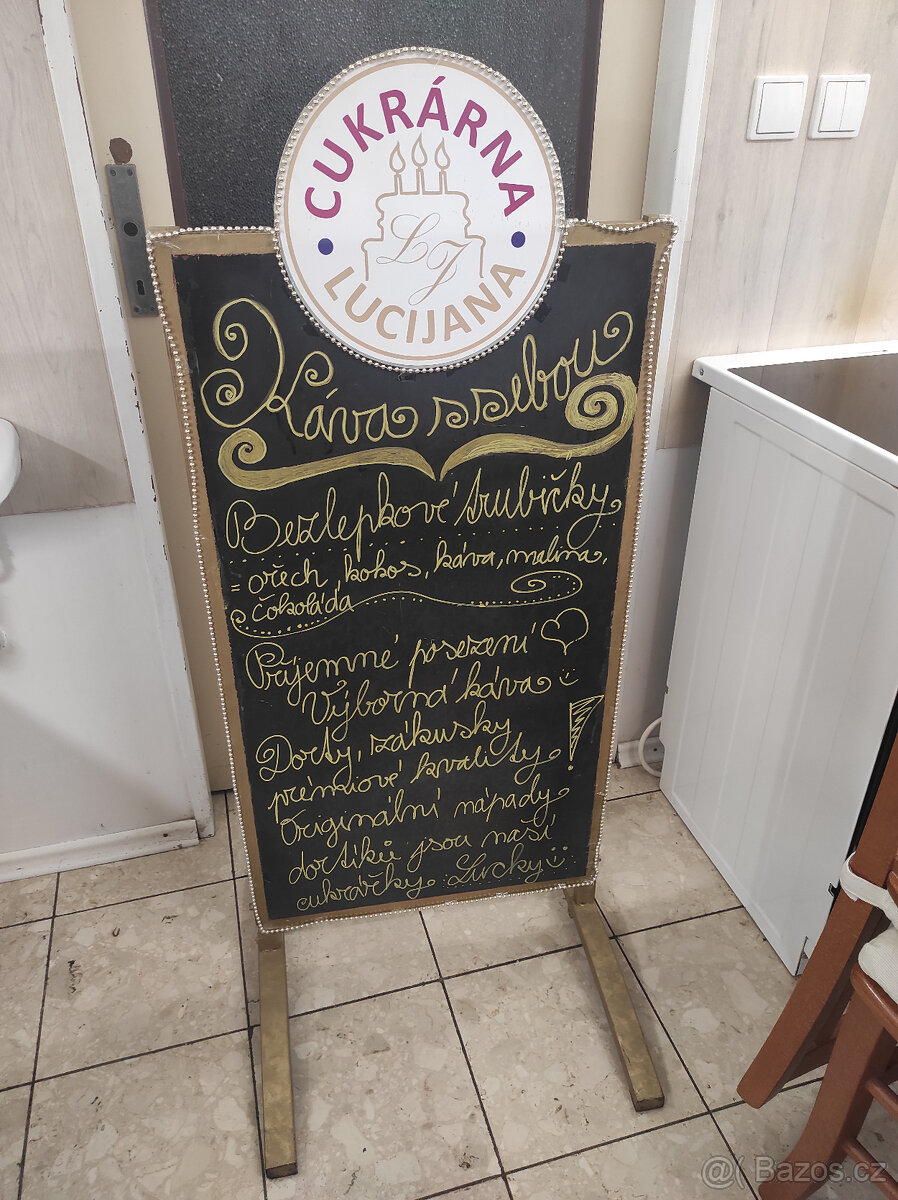 CUKRÁRNA
LJ
LUCIJANA
Káva s sebou
Bezlepkové trubičky
= ořech, kokos, káva, malina,
čokoláda
Příjemné posezení
Výborná káva
Dorty, zákusky
prémiové kvality!
Originální nápady
dortíků jsou naší
cukrářky Lucky
@( Bazos.cz